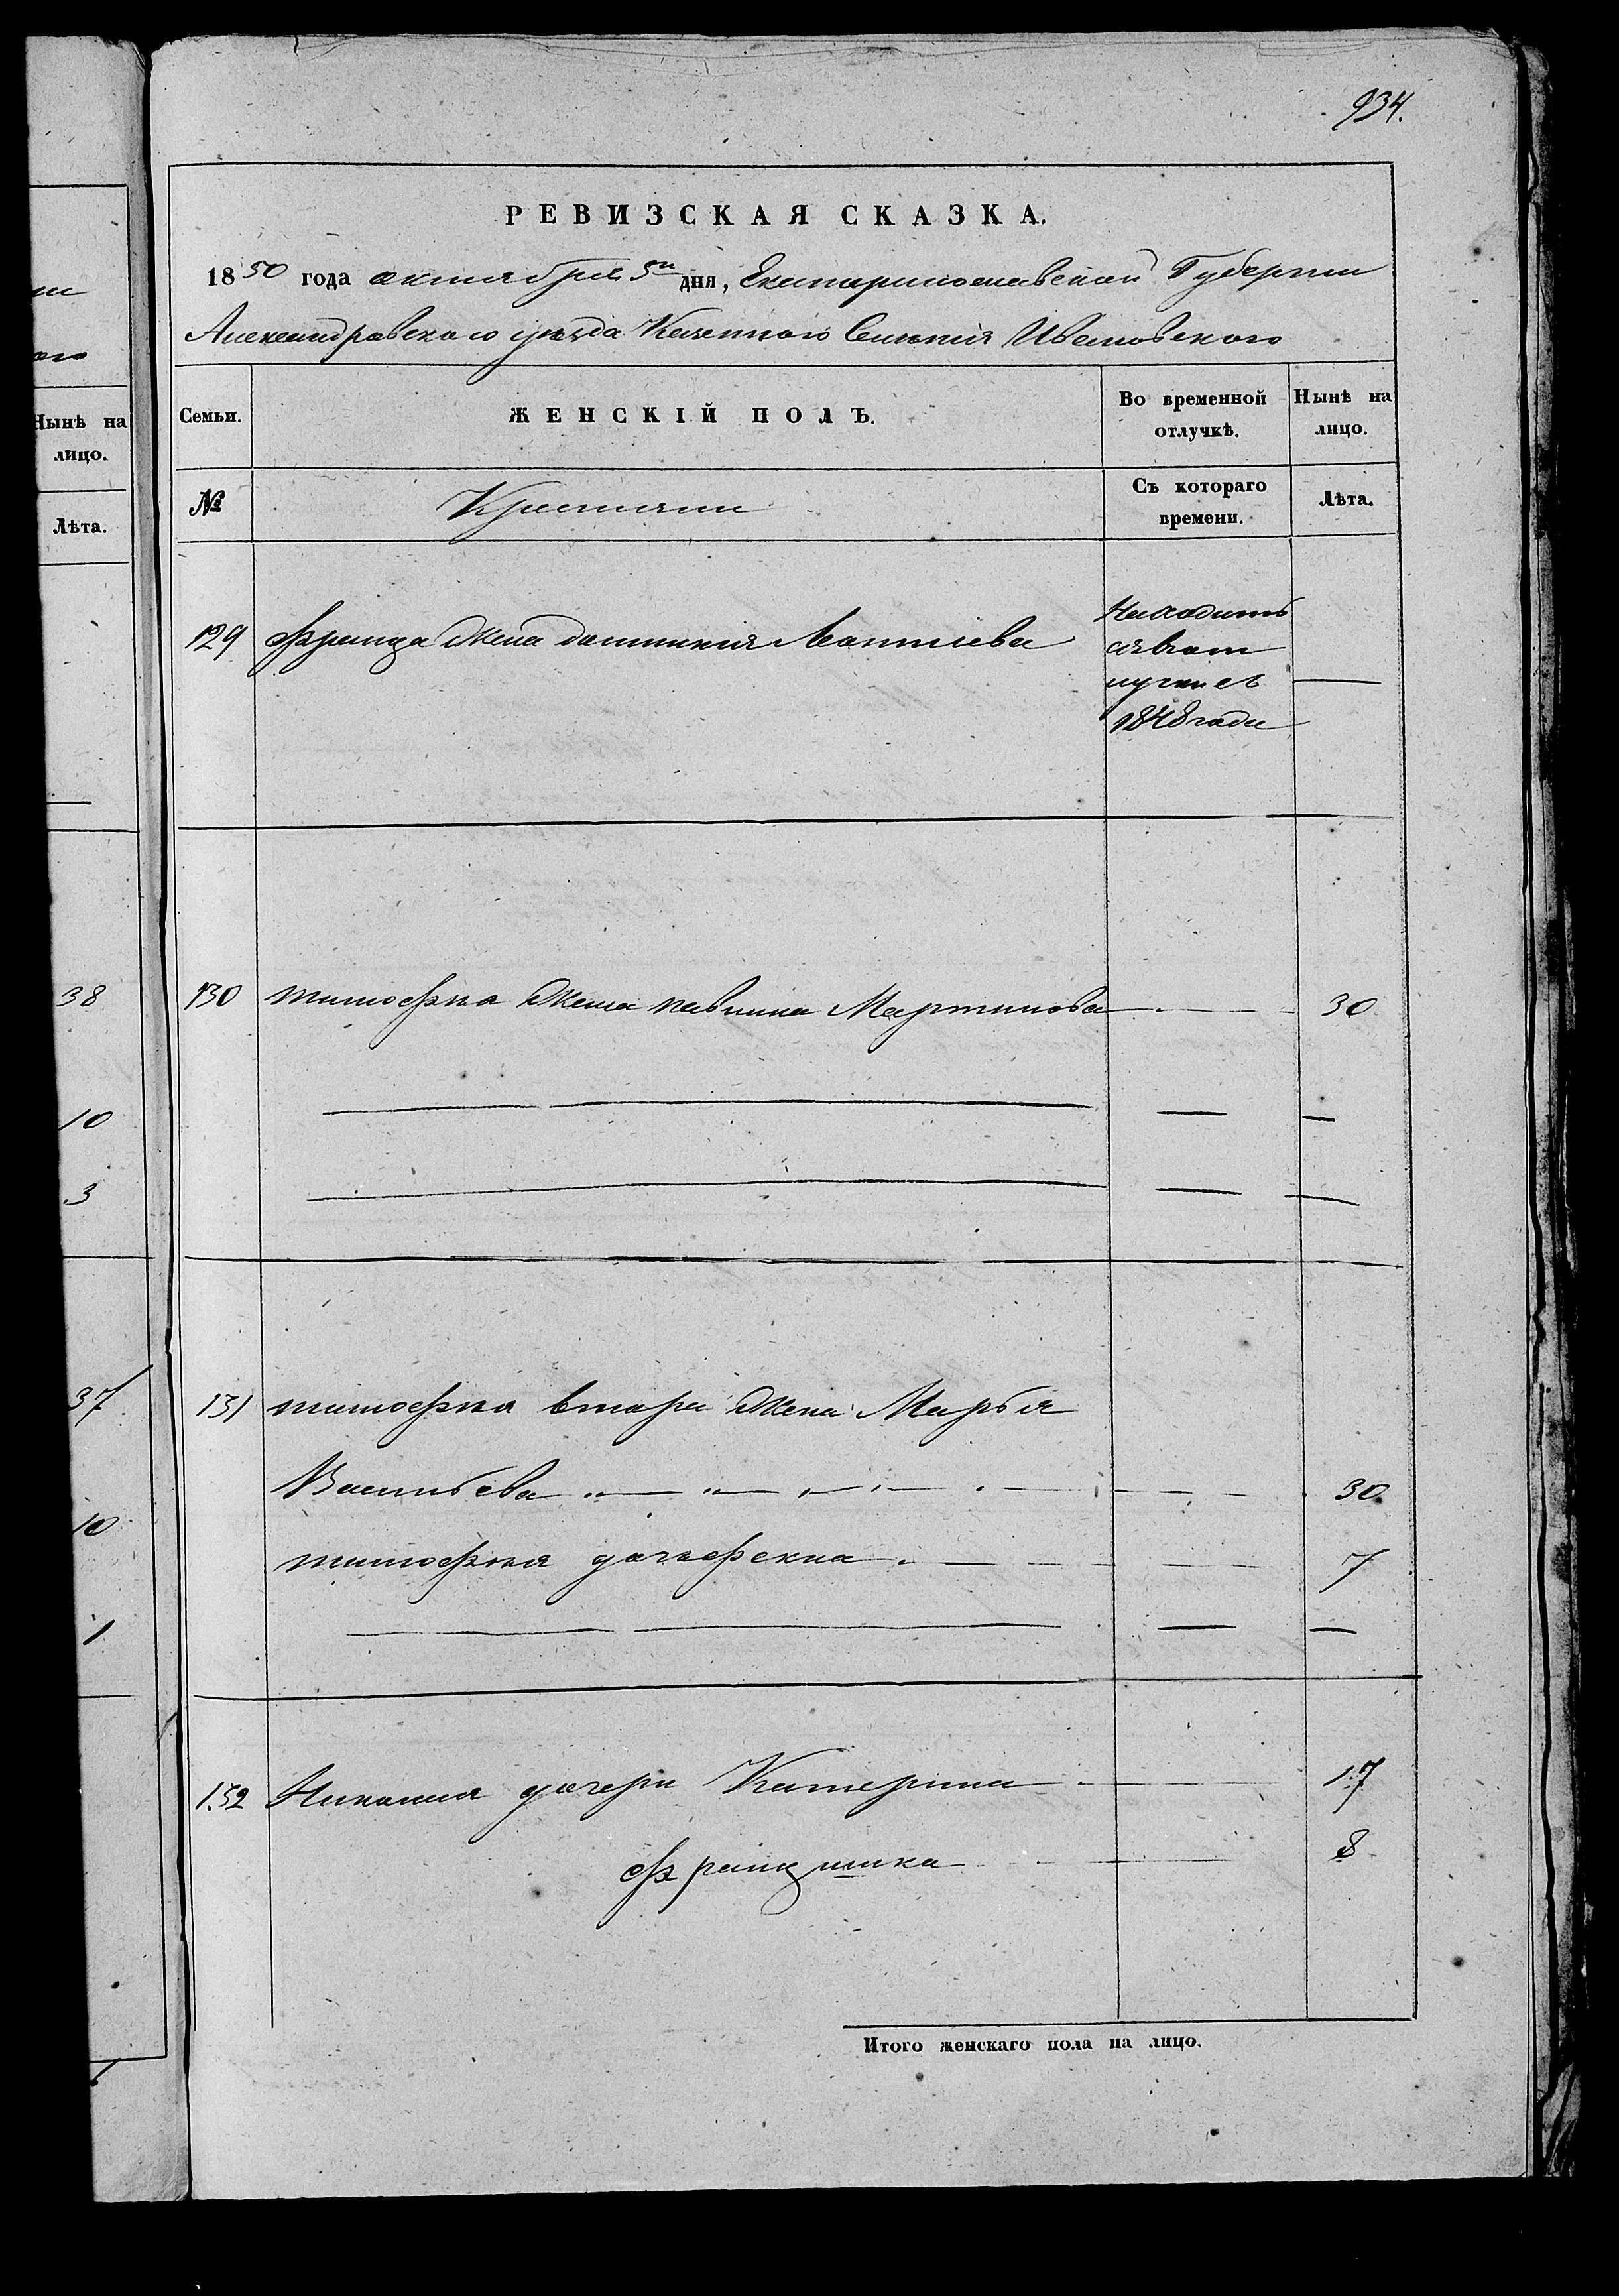 934.
РЕВИЗСКАЯ СКАЗКА.
1850 года октября 5го дня, Екатеринославской Губернии
Александровского уезда Казенного Селения Ивановского
Семьи. ЖЕНСКІЙ ПОЛЪ. Во временной отлучкѣ. Нынѣ на лицо.
№ Крестьяни Съ котораго времени. Лѣта.
129 Франца Жена Матиева Находить
ся в от
пуске с
1848 года —
130 тимофея Жена Мартинова — 30
131 тимофея втора Жена Марья
Васильева — 30
тимофея дочь фекла — 7
132 дочери Катерина — 17
францишка — 8
Итого женскаго пола на лицо.
Нынѣ на
лицо.
Лѣта.
38
10
3
37
10
1